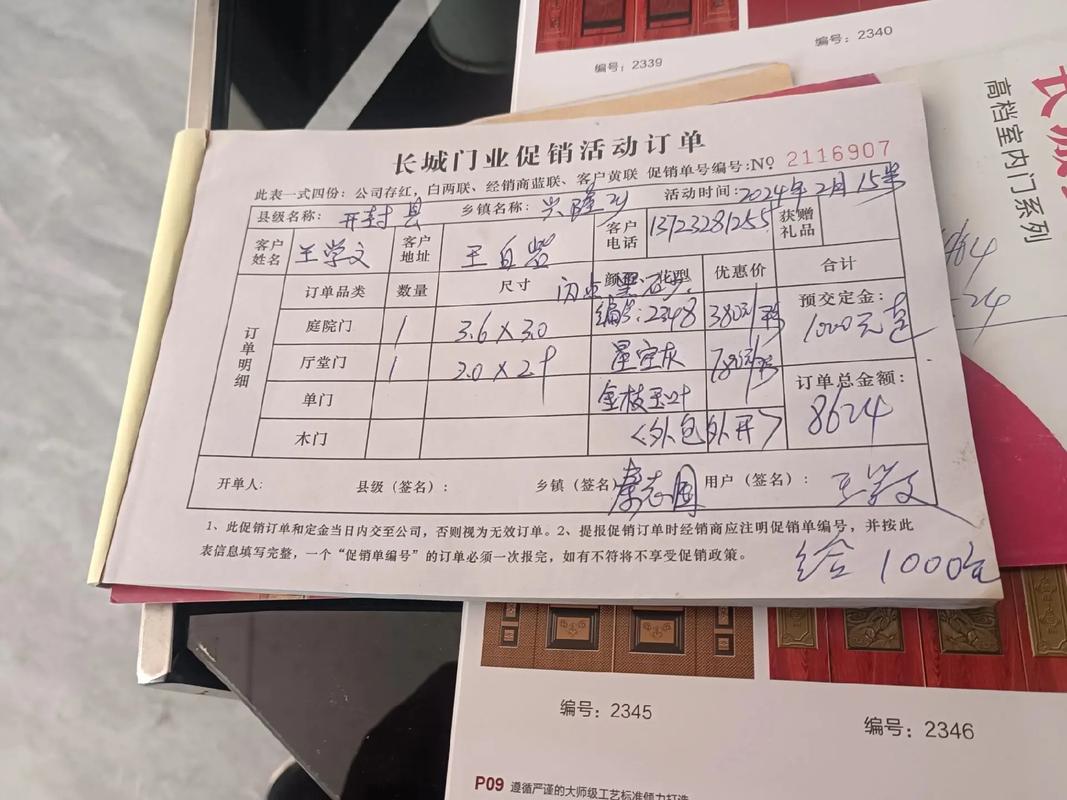 编号：2339
编号：2340
长城
高档室内门系列
长城门业促销活动订单
此表一式四份：公司存红，白两联、经销商蓝联、客户黄联 促销单号编号:No 2116907
县级名称： 开封县 乡镇名称： 兴隆 活动时间:2024年2月15
客户姓名 王学文 客户地址 客户电话 13723281255 获赠礼品
订单明细
订单品类 数量 尺寸 优惠价 合计
庭院门 1 3.6×3.0 编号:2348 380元/ 预交定金: 1000元
厅堂门 1 星空灰 780元/ 订单总金额: 8624
单门 金枝玉叶
木门 <外包外开>
开单人: 县级（签名）: 乡镇（签名） 秦志国 用户（签名）: 王学文
1、此促销订单和定金当日内交至公司，否则视为无效订单。2、提报促销订单时经销商应注明促销单编号，并按此
表信息填写完整，一个“促销单编号”的订单必须一次报完，如有不符将不享受促销政策。
给 1000元
编号：2345
编号：2346
P09 遵循严谨的大师级工艺标准倾力打造